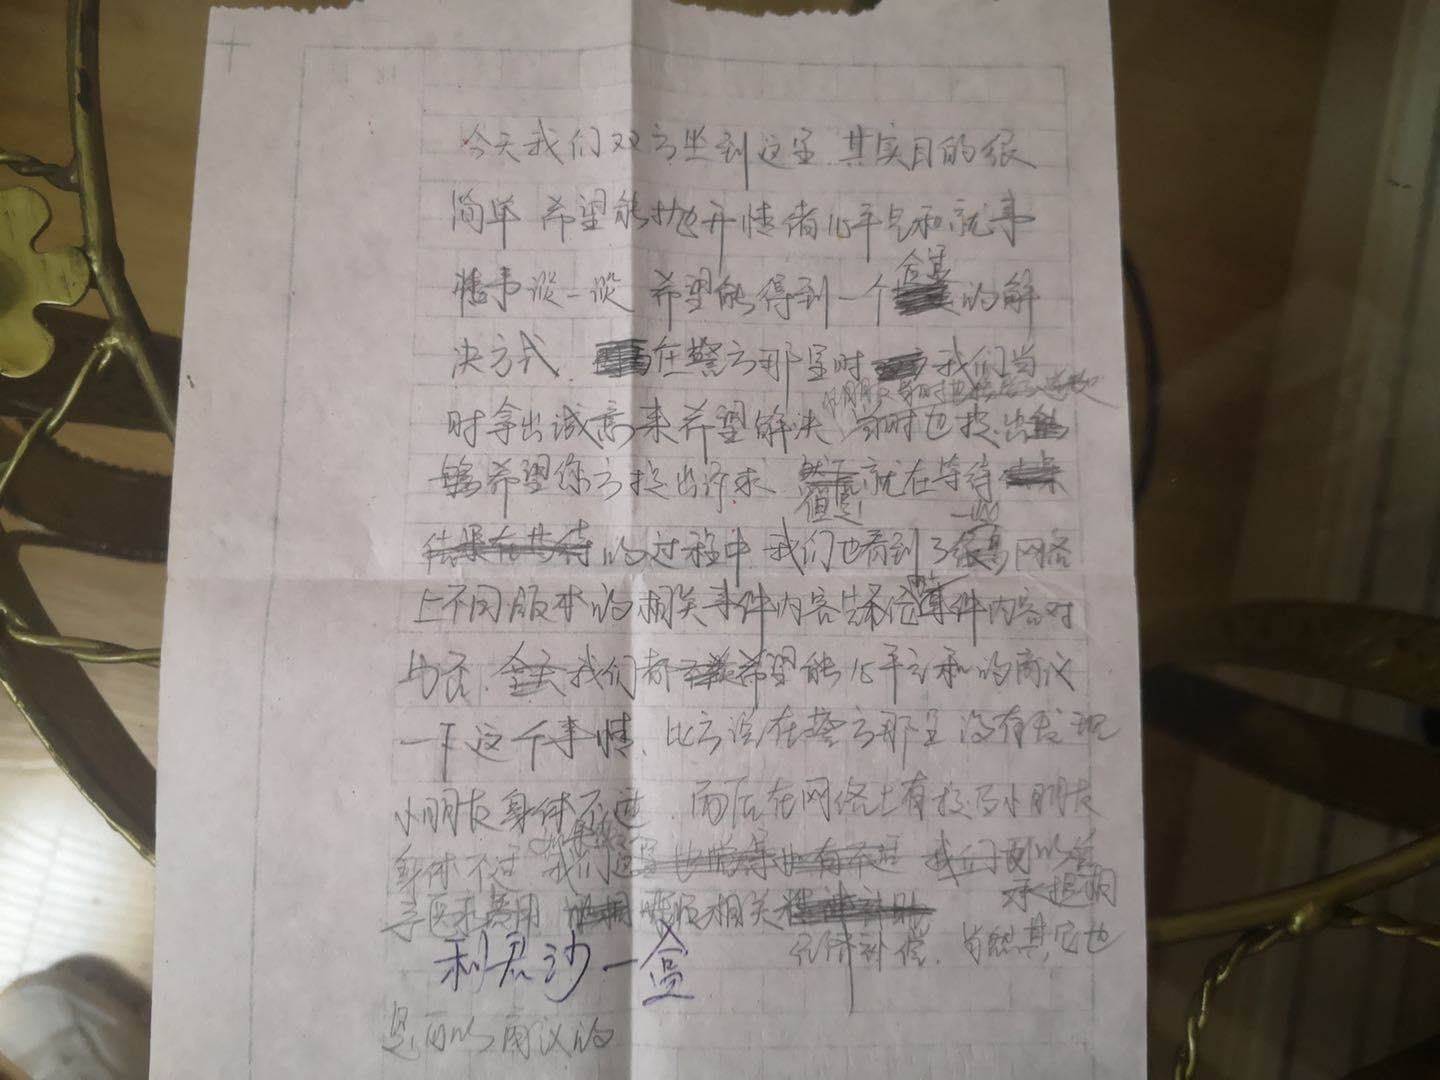 今天我们双方坐到这里.其实目的很
简单 希望能抛开情绪心平气和就事
情事谈一谈 希望能得到一个合适的解
决方式. 在警方那里时 我们当
时拿出诚意来希望解决 同时也提出
希望你方提出诉求 但是 就在等待
的过程中 我们也看到了一些网络
上不同版本的相关事件内容 不论事件内容对
与否. 我们都希望能心平气和的商议
一下这个事情. 比方说在警方那里没有发现
小朋友身体不适. 而后在网络上有提到小朋友
身体不适 我们 我们可以
医疗费用 相关 承担
利君沙一盒
经济补偿. 当然其它也
是可以商议的